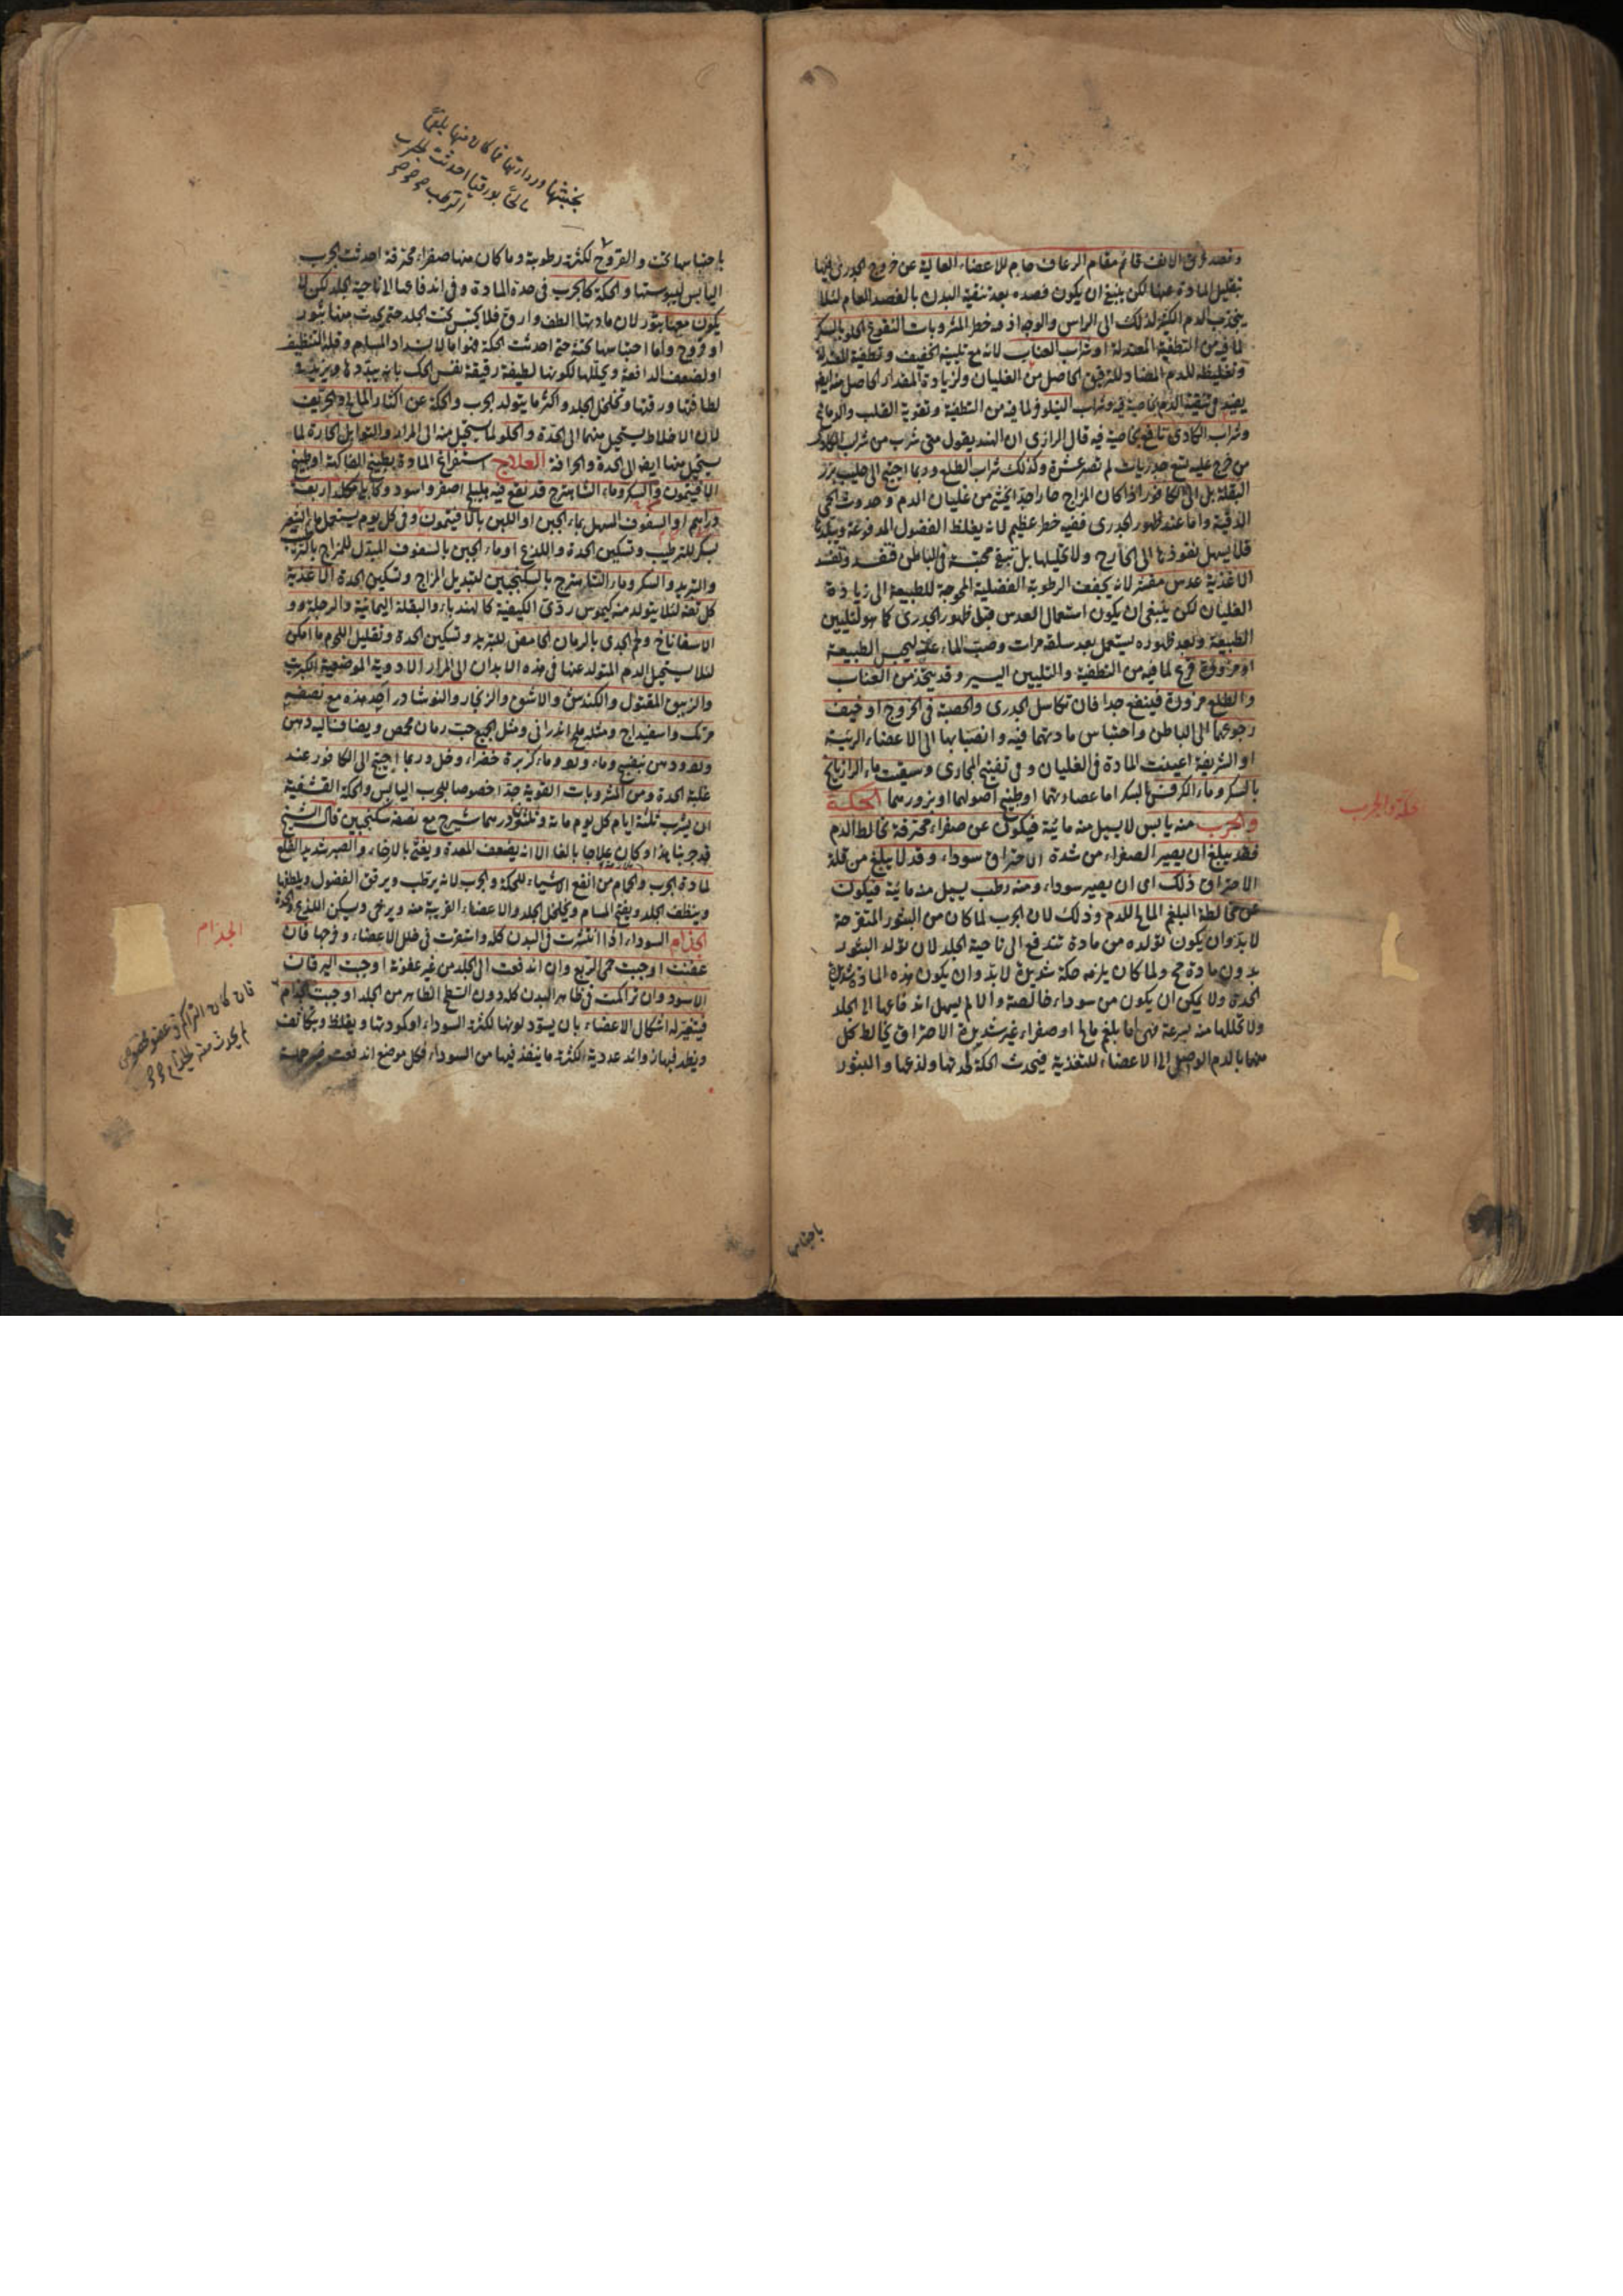 وفصد عرق الانف قائم مقام الرعاف حام للاعضاء العالية عن خروج الجدري فيها
بتقليل المادة عنها لكن ينبغ ان يكون فصده بعد تنقية البدن بالفصد العام لئلا
ينجذب الدم الكثير لذلك الى الراس والوجه اذ فيه خطر المشروبات النقوع الحلو بالسكر
لما فيه من التطفية المعتدلة او شراب العناب لانه مع تليينه الخفيف وتطفية المعتدلة
وتغليظه للدم المضاد للترقيق الحاصل من الغليان ولزيادة المقدار الحاصل منه ايضا
يفيد في تنقية الدم بخاصية فيه وشراب النيلوفر لما فيه من التطفئة وتقوية القلب والدماغ
وشراب الكادى نافع بخاصية فيه قال الرازى ان الهند يقول متى شرب من شراب الكادى
من خرج عليه تسع جدريات لم تصر عشرة وكذلك شراب الطلع وربما احتيج الى حليب بزر
البقلة بل الى الكافور اذا كان المزاج حارا جدا يخشى من غليان الدم وحدوث الحمى
الدقية واما عند ظهور الجدرى ففيه خطر عظيم لانه يغلظ الفضول المدفوعة ويبلدها
فلا يسهل نفوذها الى الخارج ولا تحليلها بل تبقى محتبسة في الباطن فتفسد وتفسد
الاغذية عدس مقشر لانه يجفف الرطوبة الفضلية المحوجة للطبيعة الى زيادة
الغليان لكن ينبغى ان يكون استعمال العدس قبل ظهور الجدرى كما هو لتليين
الطبيعة وبعد ظهوره يستعمل بعد سلقه مرات وصب الماء عنه ليحبس الطبيعة
او مزورة قرع لما فيه من التطفية والتليين اليسير وقد يتخذ من العناب
والطلع مزورة فينفع جدا فان تكاسل الجدرى والحصبة في الخروج او خيف
رجوعهما الى الباطن واحتباس مادتهما فيه وانصبابها الى الاعضاء الرئيسة
او الشريفة اعينت المادة في الغليان وفى تفتيح المجارى وسقيت ماء الرازيانج
بالسكر وماء الكرفس بالسكر اما عصارتهما او طبيخ اصولهما او بزورهما الحكة
والجرب منه يابس لا يسيل منه مائية فيكون عن صفراء محترقة تخالط الدم
فقد يبلغ ان يصير الصفراء من شدة الاحتراق سوداء وقد لا يبلغ من قلة
الاحتراق ذلك اى ان يصير سوداء ومنه رطب يسيل منه مائية فيكون
عن مخالطة البلغم المالح للدم وذلك لان الجرب لما كان من البثور المتقرحة
لا بد وان يكون تولده من مادة تندفع الى ناحية الجلد لان تولد البثور
بدون مادة مح ولما كان يلزمه حكة شديدة لا بد وان يكون هذه المادة شديدة
الحدة ولا يمكن ان يكون من سوداء خالصة والا لم يسهل اندفاعها الى الجلد
ولا تحللها منه بسرعة فهى اما بلغم مالح او صفراء غير شديدة الاحتراق يخالط كل
منهما بالدم الواصل الى الاعضاء للتغذية فيحدث الحكة لحدتها ولذعها والبثور
باحتباس
حكة والجرب
بخبثها وردائتها فما كان منها بلغما
مالحا بورقيا احدثت الجرب
الرطب
باحتباسها تحت والقروح لكثرة رطوبة وما كان منها صفراء محترقة احدثت الجرب
اليابس ليبوستها والحكة كالجرب فى حدة المادة وفى اندفاعها الى ناحية الجلد لكن لا
يكون معها بثور لان مادتها الطف وارق فلا يحتبس تحت الجلد حتى يحدث منها بثور
او قروح واما احتباسها تحته حتى احدثت الحكة فهو اما لانسداد المسام وقلة التنظيف
او لضعف الدافعة ويحللها لكونها لطيفة رقيقة نفس الحك بان يبددها ويزيد
لطافتها ورقتها وتخلخل الجلد واكثر ما يتولد الجرب والحكة عن اكثار المالح والحريف
لان الاخلاط يستحيل منهما الى الحدة والحلو لما يستحيل منه الى المرار والتوابل الحارة لما
يستحيل منها ايضا الى الحدة والحرافة العلاج استفراغ المادة بطبيخ الفاكهة او طبيخ
الافتيمون والسكر وماء الشاهترج قد نقع فيه هليلج اصفر واسود وكابلى من كل اربعة
دراهم او السفوف المسهل بماء الجبن او اللبن بالافتيمون وفى كل يوم يستعمل ماء الشعير
بسكر للترطيب وتسكين الحدة واللذع او ماء الجبن بالسفوف المبدل للمزاج
والتبريد والسكر وماء الشاهترج بالسكنجبين لتبديل المزاج وتسكين الحدة الاغذية
كل تفه لئلا يتولد منه كيموس ردئ الكيفية كالهندباء والبقلة اليمانية والرجلة و
الاسفاناخ ولحم الجدى بالرمان الحامض للتبريد وتسكين الحدة وتقليل اللحم ما امكن
لئلا يستحيل الدم المتولد عنها في هذه الابدان الى المرار الادوية الموضعية الكبريت
والزيبق المقتول والكندس والاشق والزنجار والنوشادر احد هذه مع نصفه
مرتك واسفيداج ومثله ملح اندرانى ومثل الجميع حب رمان محمص ويضاف اليه دهن
ورد ودهن بنفسج وماء ورد وماء كزبرة خضراء وخل وربما احتيج الى الكافور عند
غلبة الحدة ومن المشروبات القوية جدا خصوصا للجرب اليابس والحكة القشفية
ان يشرب ثلثة ايام كل يوم مائة وثلثون درهما شيرج مع نصفه سكنجبين قال الشيخ
قد جربنا هذا وكان علاجا بالغا الا انه يضعف المعدة ويغثى بالارخاء والصبر شديد القلع
لمادة الجرب والحمام من انفع الاشياء للحكة والجرب لانه يرطب ويرقق الفضول ويلطفها
وينظف الجلد ويفتح المسام ويخلخل الجلد والاعضاء القريبة منه ويرخى ويسكن اللذع والحدة
الجذام السوداء اذا انتشرت في البدن كله واستقرت فى خلل الاعضاء وفرجها فان
عفنت اوجبت حمى الربع وان اندفعت الى الجلد من غير عفونة اوجبت اليرقان
الاسود وان تراكمت في ظاهر البدن كله دون السطح الظاهر من الجلد اوجبت الجذام
فيتغير له اشكال الاعضاء بان يسود لونها لكثرة السوداء او كمودتها ويغلظ ويتكاثف
ويظهر فيها زوائد غددية لكثرة ما ينفذ فيها من السوداء فكل موضع اندفعت
الجذام
فان كان التراكم في عضو مخصوص
لم يحدث منه الجذام